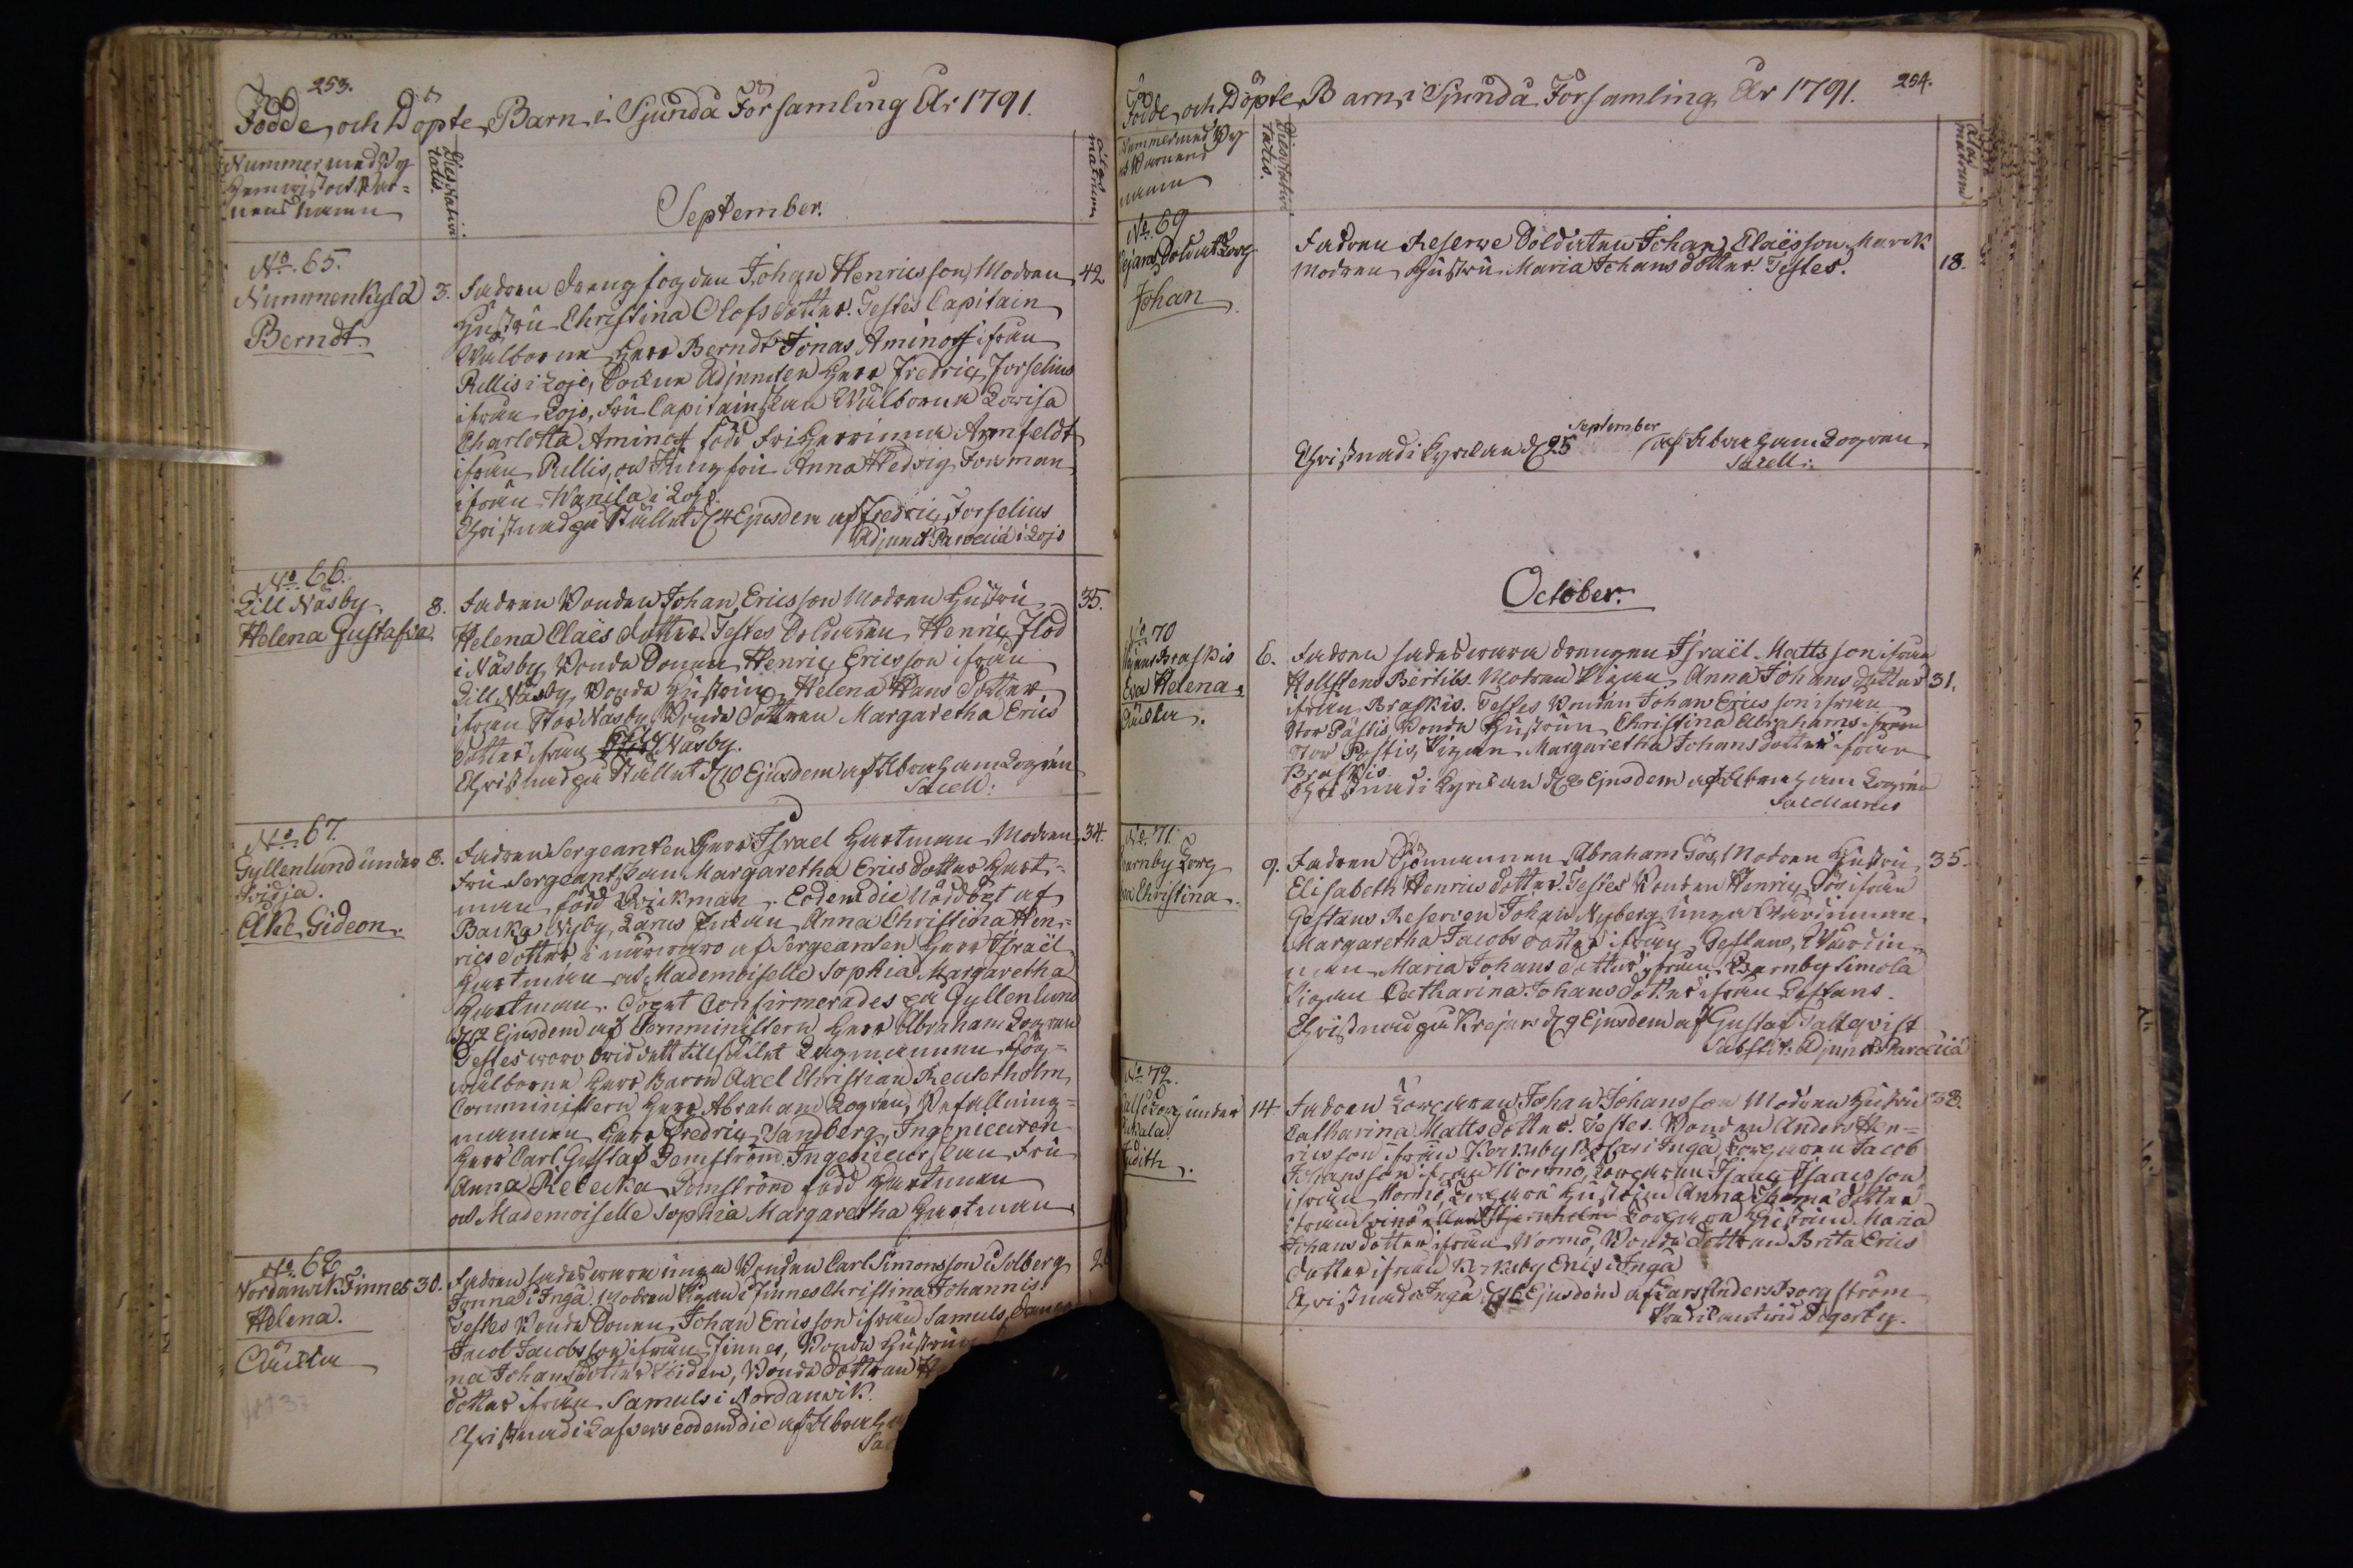 253.
Födde och Döpte Barn i Sjundå Församling År 1791.
Nummer med By
Hemvist och Bar=
nens namn
Dies nativi-
tatis.
September.
ætas
matrum
No. 65.
Nummenkylä
Berndt
3.
Fadren Drengfogden Johan Henricsson, Modren
42
Hustru Christina Olofsdotter. Testes Capitain
Wälborne Herr Berndt Jonas Aminoff ifrån
Rillis i Lojo, Adjuncten Herr Fredric Forselius
ifrån Lojo, Fru Capitainskan Wälborna Lovisa
Charlotta Aminoff född Friherrinna Armfeldt
ifrån Rillis, och Jungfru Anna Hedvig Forsman
ifrån Wanila i Lojo.
Christnad på Stället d. 4 Ejusdem af Fredric Forselius
Adjunct Paroeciæ i Lojo
No. 66.
Lill Näsby
Helena Gustafva.
8.
Fadren Bonden Johan Ericsson Modren Hustru
35.
Helena Claës dotter. Testes Soldaten Henric Flod
i Näsby, Bonde Sonen Henric Ericsson ifrån
Lill Näsby, Bonde Hustrun Helena Hans dotter
ifrån Stor Näsby, Bonde Dottren Margaretha Erics
dotter ifrån Näsby.
Christnad på Stället d. 10 Ejusdem af Abraham Logrén
Sacell:
No. 67.
Gyllenlund under
Fridja.
Ake Gideon.
8.
Fadren Sergeanten Herr Israel Hartman Modren
34.
Fru Sergeantskan Margaretha Ericsdotter Hart=
man född Brinkman. Eodem die Nöddöpt af
Backa Nyby Lars Enkan Anna Christina Hen=
rics dotter, i närvaro af Sergeanten Herr Israël
Hartman och Mademoiselle Sophia Margaretha
Hartman. Dopet Confirmerades på Gyllenlund
d. 12 Ejusdem af Comministern Herr Abraham Logrén
Testes woro wid detta tillfället Lagmannen Hög=
wälborne Herr Baron Axel Christian Reuterholm
Comministern Herr Abraham Logrén, Befallning=
mannen Herr Fredric Sandberg, Ingenieuren
Herr Carl Gustaf Demström, Ingenieurskan Fru
Anna Rebecka Demström född Hartman
och Mademoiselle Sophia Margaretha Hartman
No. 68
Nordanvik Finnes
Helena.
Oäckta
30.
Fadren sades wara unga Bonden Carl Simonsson Solberg
Fonna i Inga, Modren Pigan i Finnes Christina Johannis.
Testes Bonde Sonen Johan Ericsson ifrån Samuls,
Jacob Jacobsson ifrån Finnes, Bonde Hustrun
na Johansdotter ibidem, Bonde dottren
dotter ifrån Samuls i Nordanvik.
Christnad i Lassers eodem die af Abraha
Sac
254.
Födde och Döpte Barn i Sjundå Församling År 1791.
Nummer med By
och Barnens
namn
Dies nativi-
tatis.
ætas
matrum
No. 69
Soldat Torp
Johan
Fadren Reserve Soldaten Johan Claësson Marck
Modren Hustru Maria Johans dotter. Testes.
18.
September
Christnad i Kyrckan d. 25 af Abraham Logren
Sacell:
October.
No. 70
Braskis
Eva Helena
Oäckta.
6.
Fadren sades wara drengen Israël Mattsson ifrån
Hollstens Bertils. Modren Pigan Anna Johansdotter
31.
ifrån Braskis. Testes Bonden Johan Ericsson ifrån
Stor Pastis, Bonde Hustrun Christina Abrahams ifrån
Stor Pastis, Pigan Margaretha Johansdotter ifrån
Braskis
Christnad i Kyrckan d. 8 Ejusdem af Abraham Logrén
Sacellanus
No. 71.
arnby Torp
Christina.
9.
Fadren Sjömannen Abraham Gös, Modren Hustru
35.
Elisabeth Henrics dotter. Testes Bonden Henric Gös ifrån
Gestans Reserven Johan Nyberg, unga Wärdinnan
Margaretha Jacobs dotter ifrån Gestans, Wärdin=
nan Maria Johans dotter ifrån Barnby Simola
Pigan Catharina Johansdotter ifrån Gestans.
Christnad på Krejans d. 9 Ejusdem af Gustaf Tallqvist
Substit: Adjunct Paroeciæ
No. 72.
under
Judith.
14.
Fadren Torparen Johan Johansson Modren Hustru
38.
Catharina Matts dotter. Testes. Bonden Anders Hen=
ricsson ifrån Kerkuby i Inga, Torparen Jacob
Johansson ifrån Wormö, Torparen Isaac Isaacsson
ifrån Wormö, Torpare Hustrun Anna Thomædotter
ifrån Svinö Stjernholm Torpare Hustrun Maria
Johansdotter ifrån Wormö, Bonde Dottren Brita Erics
dotter ifrån Kerkuby Enis i Inga
Christnad i Inga d. 16 Ejusdem af Lars Anders Borgström
Predicant vid Degerby.